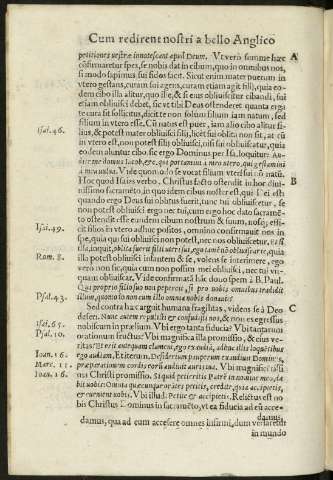 Cum redirent nostri a bello Anglico
petitiones vestræ innotescant apud Deum. Vt verò summe hæc A
cõfirmaretur spes, se nobis dat in cibum, quo in omnibus nos,
si modo sapimus sui fidos facit. Sicut enim mater puerum in
vtero gestans, curam sui agens, curam etiam agit filij, quia eo-
dem cibo illa alitur, quo ille, & si eius obliuisci
etiam obliuisci debet, sic vt tibi Deus ostenderet quanta erga
te cura sit sollicitus, dicit te non solùm filium iam natum, sed
Isai. 46. filium in vtero esse. Cũ natus est puer, iam alio cibo alitur fi-
lius, & potest mater obliuisci filij, licèt sui oblita non sit, at cũ
in vtero est, non potest filij obliuisci, nisi sui obliuiscatur, quia
eodem aluntur cibo. sic ergo Dominus per Isa. loquitur: Au-
dite me domus Iacob, &c. qui portamini à meo vtero, qui gestamini
à mea vulua. Vide quomodo se vocat filium vteri sui cũ natũ. B
Hoc quod Isaias verbo, Christus facto ostendit in hoc diui-
nissimo sacramẽto, in quo idem cibus noster est, qui Dei est
quando ergo Deus sui oblitus fuerit, tunc tui obliuiscetur, se
non potest obliuisci ergo nec tui, cum ergo hoc dato sacramẽ-
to ostendit esse eundem cibum nostrum & suum, nos effi-
Isai. 49. cit filios in vtero adhuc positos, omnino confirmauit nos in
spe, quia qui sui obliuisci non potest, nec nos obliuiscetur. Et si
illa, inquit, oblita fuerit filij vteri sui, ego tamẽ nõ obliuiscar tui,
Rom. 8. illa potest obliuisci infantem & se, volens se interimere, ego
vero non sic, quia cum non possim mei obliuisci, nec tui vn-
quam obliuiscar. Vide confirmatã hãc diuo spem à B. Paul.
Qui proprio filio suo non pepercit, sed pro nobis omnibus tradidit
Psal. 43. illum, quomodo non cum illo omnia nobis donauit?
Sed contra hæc arguit humana fragilitas, videns se à Deo C
deseri. Nunc autem repulisti & confudisti nos, & non egressus
Isai. 65. nobiscum in prælium. Vbi ergo tanta fiducia? Vbi tantarum
Psal. 10. orationum fructus? Vbi magnifica illa promissio, & eius ve-
ritas? Et erit antequam clament, ego exaudiã, adhuc illis loquẽtibus
Ioan. 16. ego audiam. Et iterum. Desiderium pauperum exaudiuit Dominus,
Marc. 11. præparationem cordis eorũ audiuit auris tua. Vbi magnificẽtissi-
Ioan. 16. ma Christi promissio. Si quid petieritis Patrẽ in nomine meo, da-
bit vobis: Omnia quæcumque orantes petitis, credite, quia accipietis,
& euenient vobis. Vbi illud: Petite & accipietis. Relictus est no
bis Christus Dominus in sacramẽto, vt ea fiducia ad eũ acce-
damus,
damus, qua ad eum accesere omnes infirmi, dum versaretur
in mundo